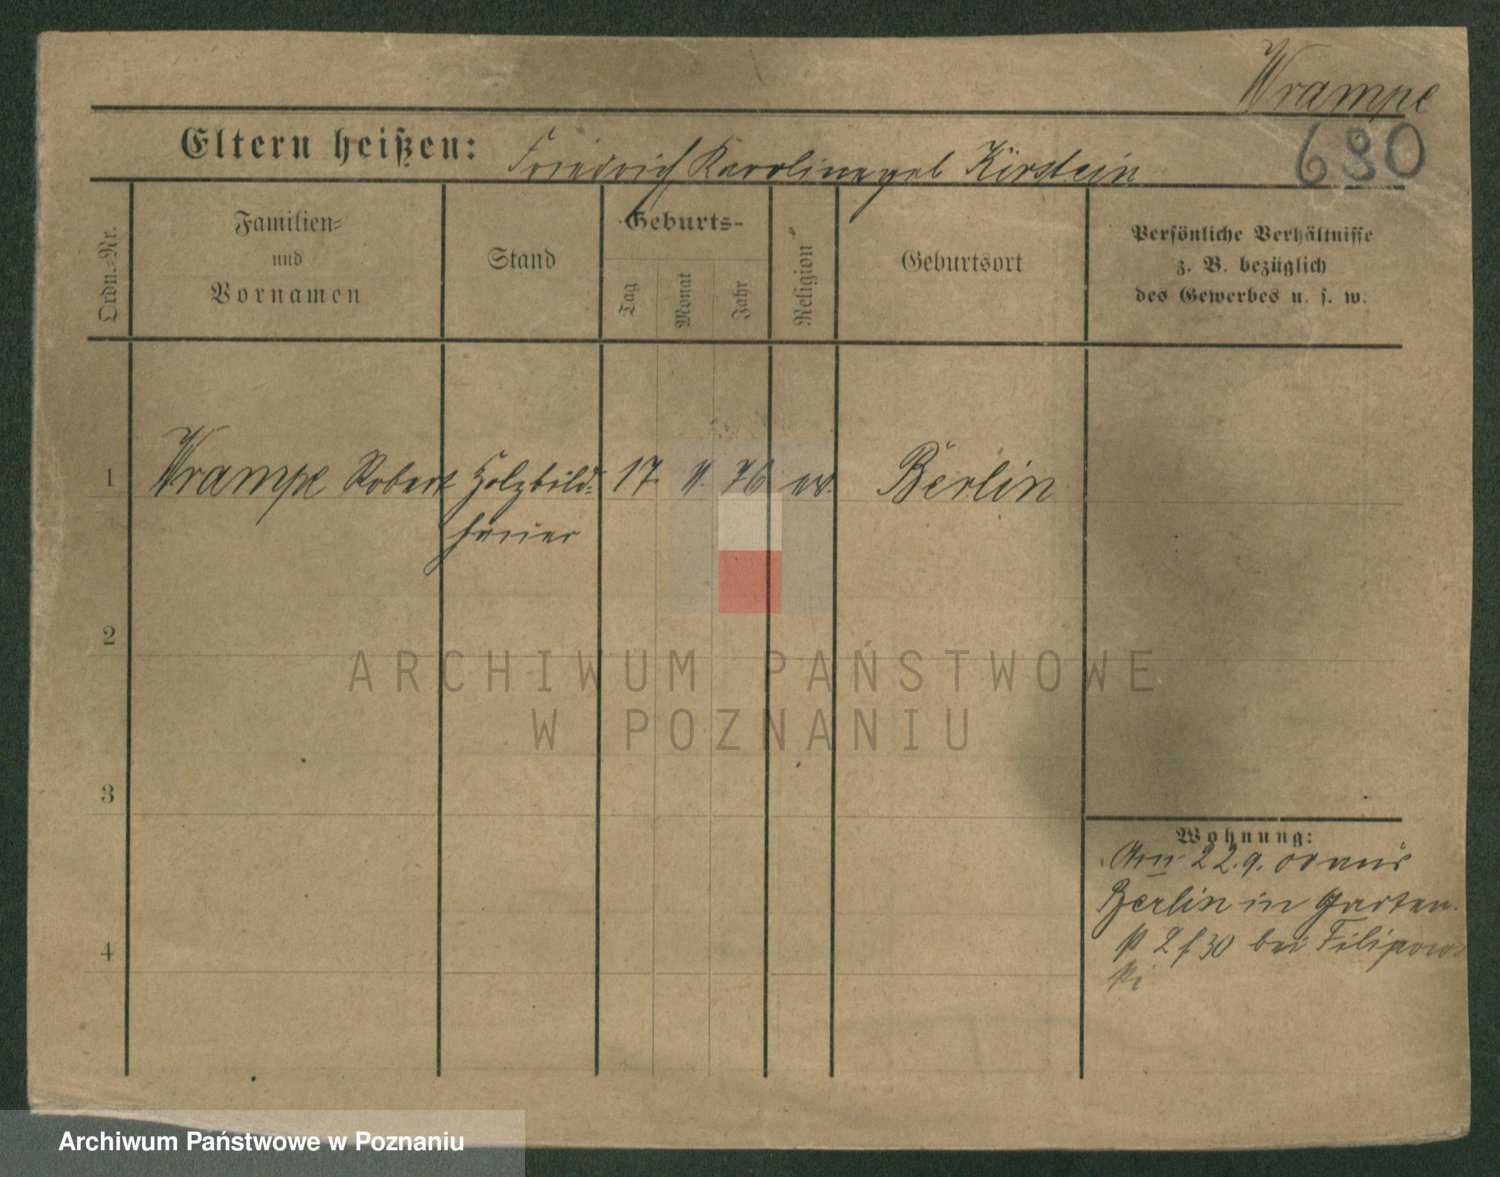 Wrampe
680
Eltern heißen: Friedrich Karoline geb Kirstein
Ordn.-Nr.
Familien-
und
Vornamen
Stand
Geburts-
Tag
Monat
Jahr
Religion
Geburtsort
Persönliche Verhältnisse
z. B. bezüglich
des Gewerbes u. s. w.
1 Wrampe Robert Holzbild- 17. 76 ev. Berlin
hauer
2
3
4
Wohnung:
22.9. aus
Berlin in Garten
bei Filipows
ki
ARCHIWUM PAŃSTWOWE
W POZNANIU
Archiwum Państwowe w Poznaniu